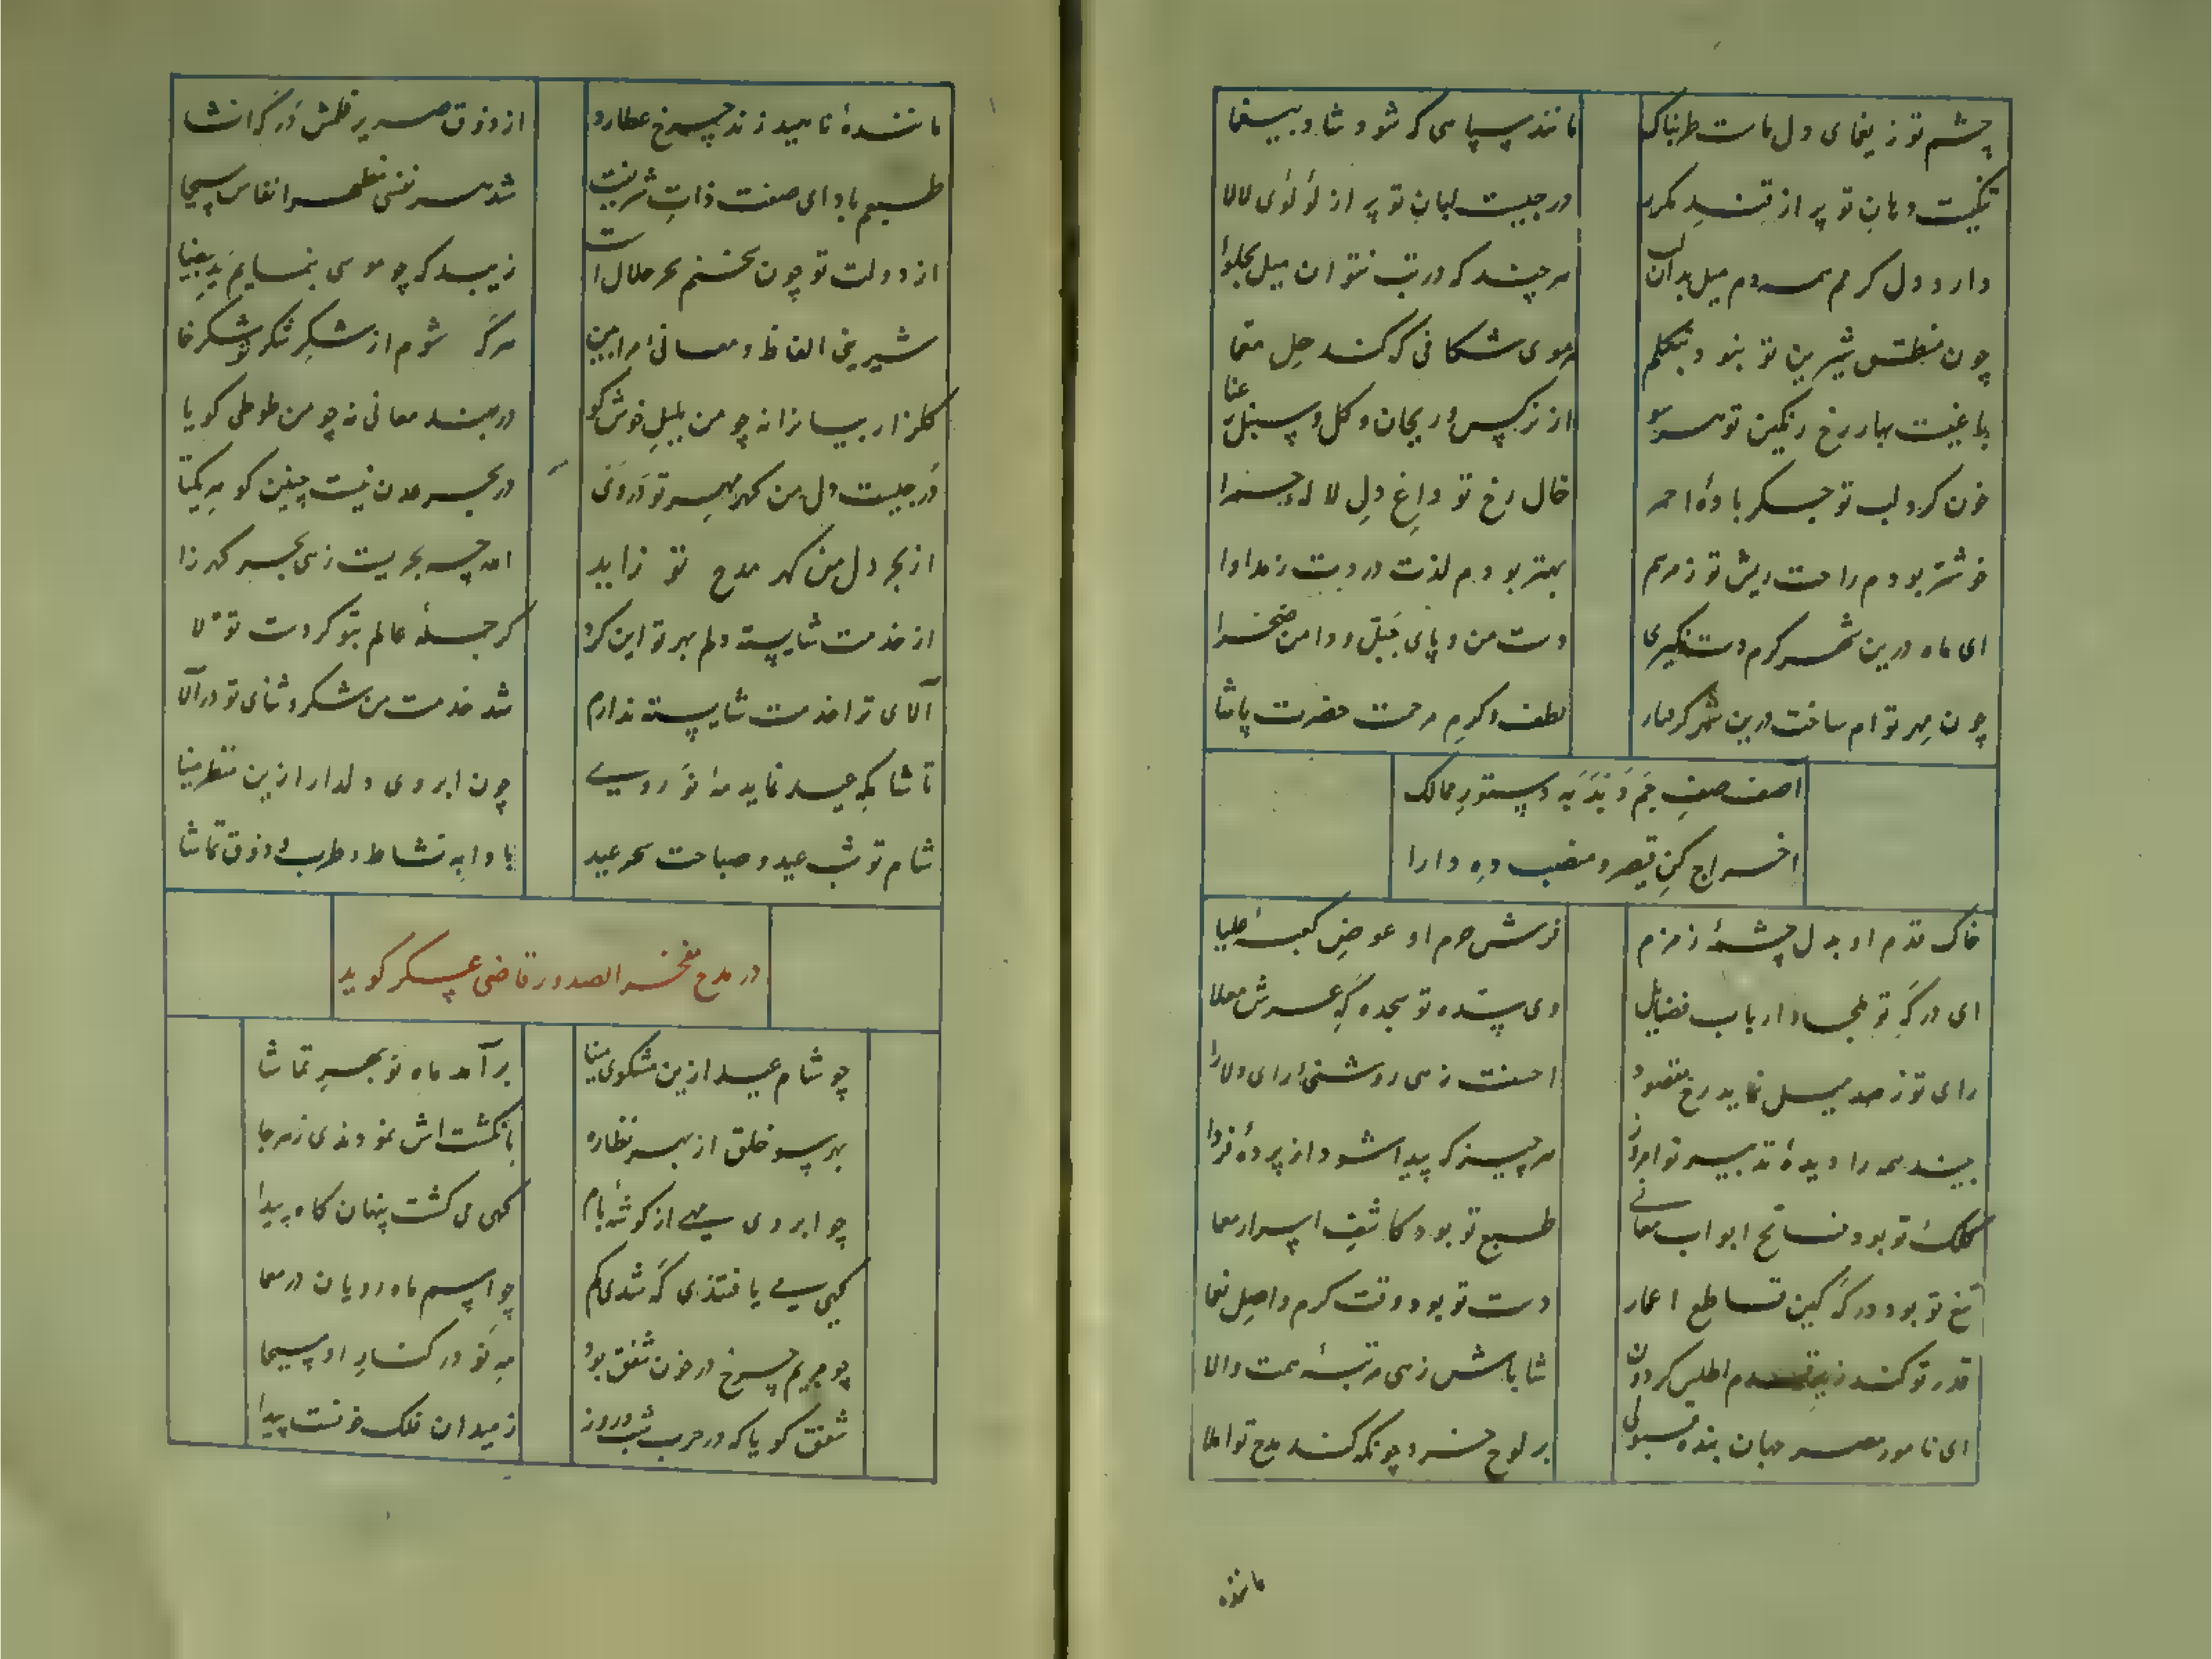 چشم تو ز یغمای دل ماست طربناک
مانند سپاهی که شود شاد بیغما
تنگیست دهان تو پر از قند مکرر
درجیست لبان تو پر از لؤلؤی لالا
دارد دل کرمم همه دم میل بدان لب
هر چند که در تب نتوان میل بحلوا
چون منطق شیرین تو بنود بتکلم
هر موی شکافی که کند حل معما
باغیست بهار رخ رنگین تو هر سو
از نرکس و ریحان و کل و سنبل رعنا
خون کرد لب تو جکر بادهٔ احمر
خال رخ تو داغ دل لالهٔ حمرا
خوشتر بودم راحت ریش تو ز مرهم
بهتر بودم لذت دردت ز مداوا
ای ماه درین شهر کرم دست نکیری
دست من و پای جبل و دامن صحرا
چون مهر توام ساخت درین شهر کرفتار
لطف و کرم مرحمت حضرت پاشا
آصف صف جم دبدبه دستور ممالک
اخراج کن قیصر و منصب ده دارا
خاک قدم او بدل چشمهٔ زمزم
فرش حرم او عوض کعبهٔ علیا
ای درکه تو ملجاء ارباب فضایل
وی سده تو سجده که عرش معلا
رای تو ز صد میل نماید رخ مقصود
احسنت زهی روشنی رای دلارا
بیند همه را دیدهٔ تدبیر تو امروز
هر چیز که پیدا شود از پردهٔ فردا
کلک تو بود فاتح ابواب معانی
طبع تو بود کاشف اسرار معما
تیغ تو بود در که کین قاطع اعمار
دست تو بود وقت کرم واصل نعما
قدر تو کند زیر قدم اطلس کردون
شاباش زهی مرتبهٔ همت والا
ای نامور مصر جهان بنده قبولی
بر لوح خرد چونکه کند مدح تو املا
ماننده
مانندهٔ ناهید زند چرخ عطارد
از ذوق صریر قلمش در که انشا
طبعم بادای صفت ذات شریفت
شد هر نفسی مظهر انفاس مسیحا
از دولت تو چون سخنم سحر حلال است
زیبد که چو موسی بنمایم ید بیضا
شیرینی الفاظ و معانی مرا بین
هر که شوم از شکر شکر تو شکرخا
کلزار بیان را نه چو من بلبل خوش کو
در هند معانی نه چو من طوطی کویا
درجیست دل من کهر مهر تو دروی
در بحر عدن نیست چنین کوهر یکتا
از بحر دل من کهر مدح تو زاید
الله چه بحریست زهی بحر کهرزا
از خدمت شایسته دلم بهر تو این کرد
کز جملهٔ عالم بتو کردست تولا
آلای ترا خدمت شایسته ندارم
شد خدمت من شکر و ثنای تو در آلا
تا شامکه عید نماید مه نو روی
چون ابروی دلدار ازین منظر مینا
شام تو شب عید و صباحت سحر عید
بادا به نشاط و طرب و ذوق تماشا
در مدح مفخر الصدور قاضی عسکر کوید
چو شام عید ازین مشکوی مینا
برآمد ماه نو بهر تماشا
بهر سو خلق از بهر نظاره
بانکشت اش نمودندی ز هر جا
چو ابروی مهی از کوشهٔ بام
کهی می کشت پنهان کاه پیدا
کهی می یافتندی که شدی کم
چو اسم ماه رویان در معما
چو مریم چرخ در خون شفق بود
مه نو در کنار او مسیحا
شفق کویا که در حرب شب و روز
ز میدان فلک خونست پیدا